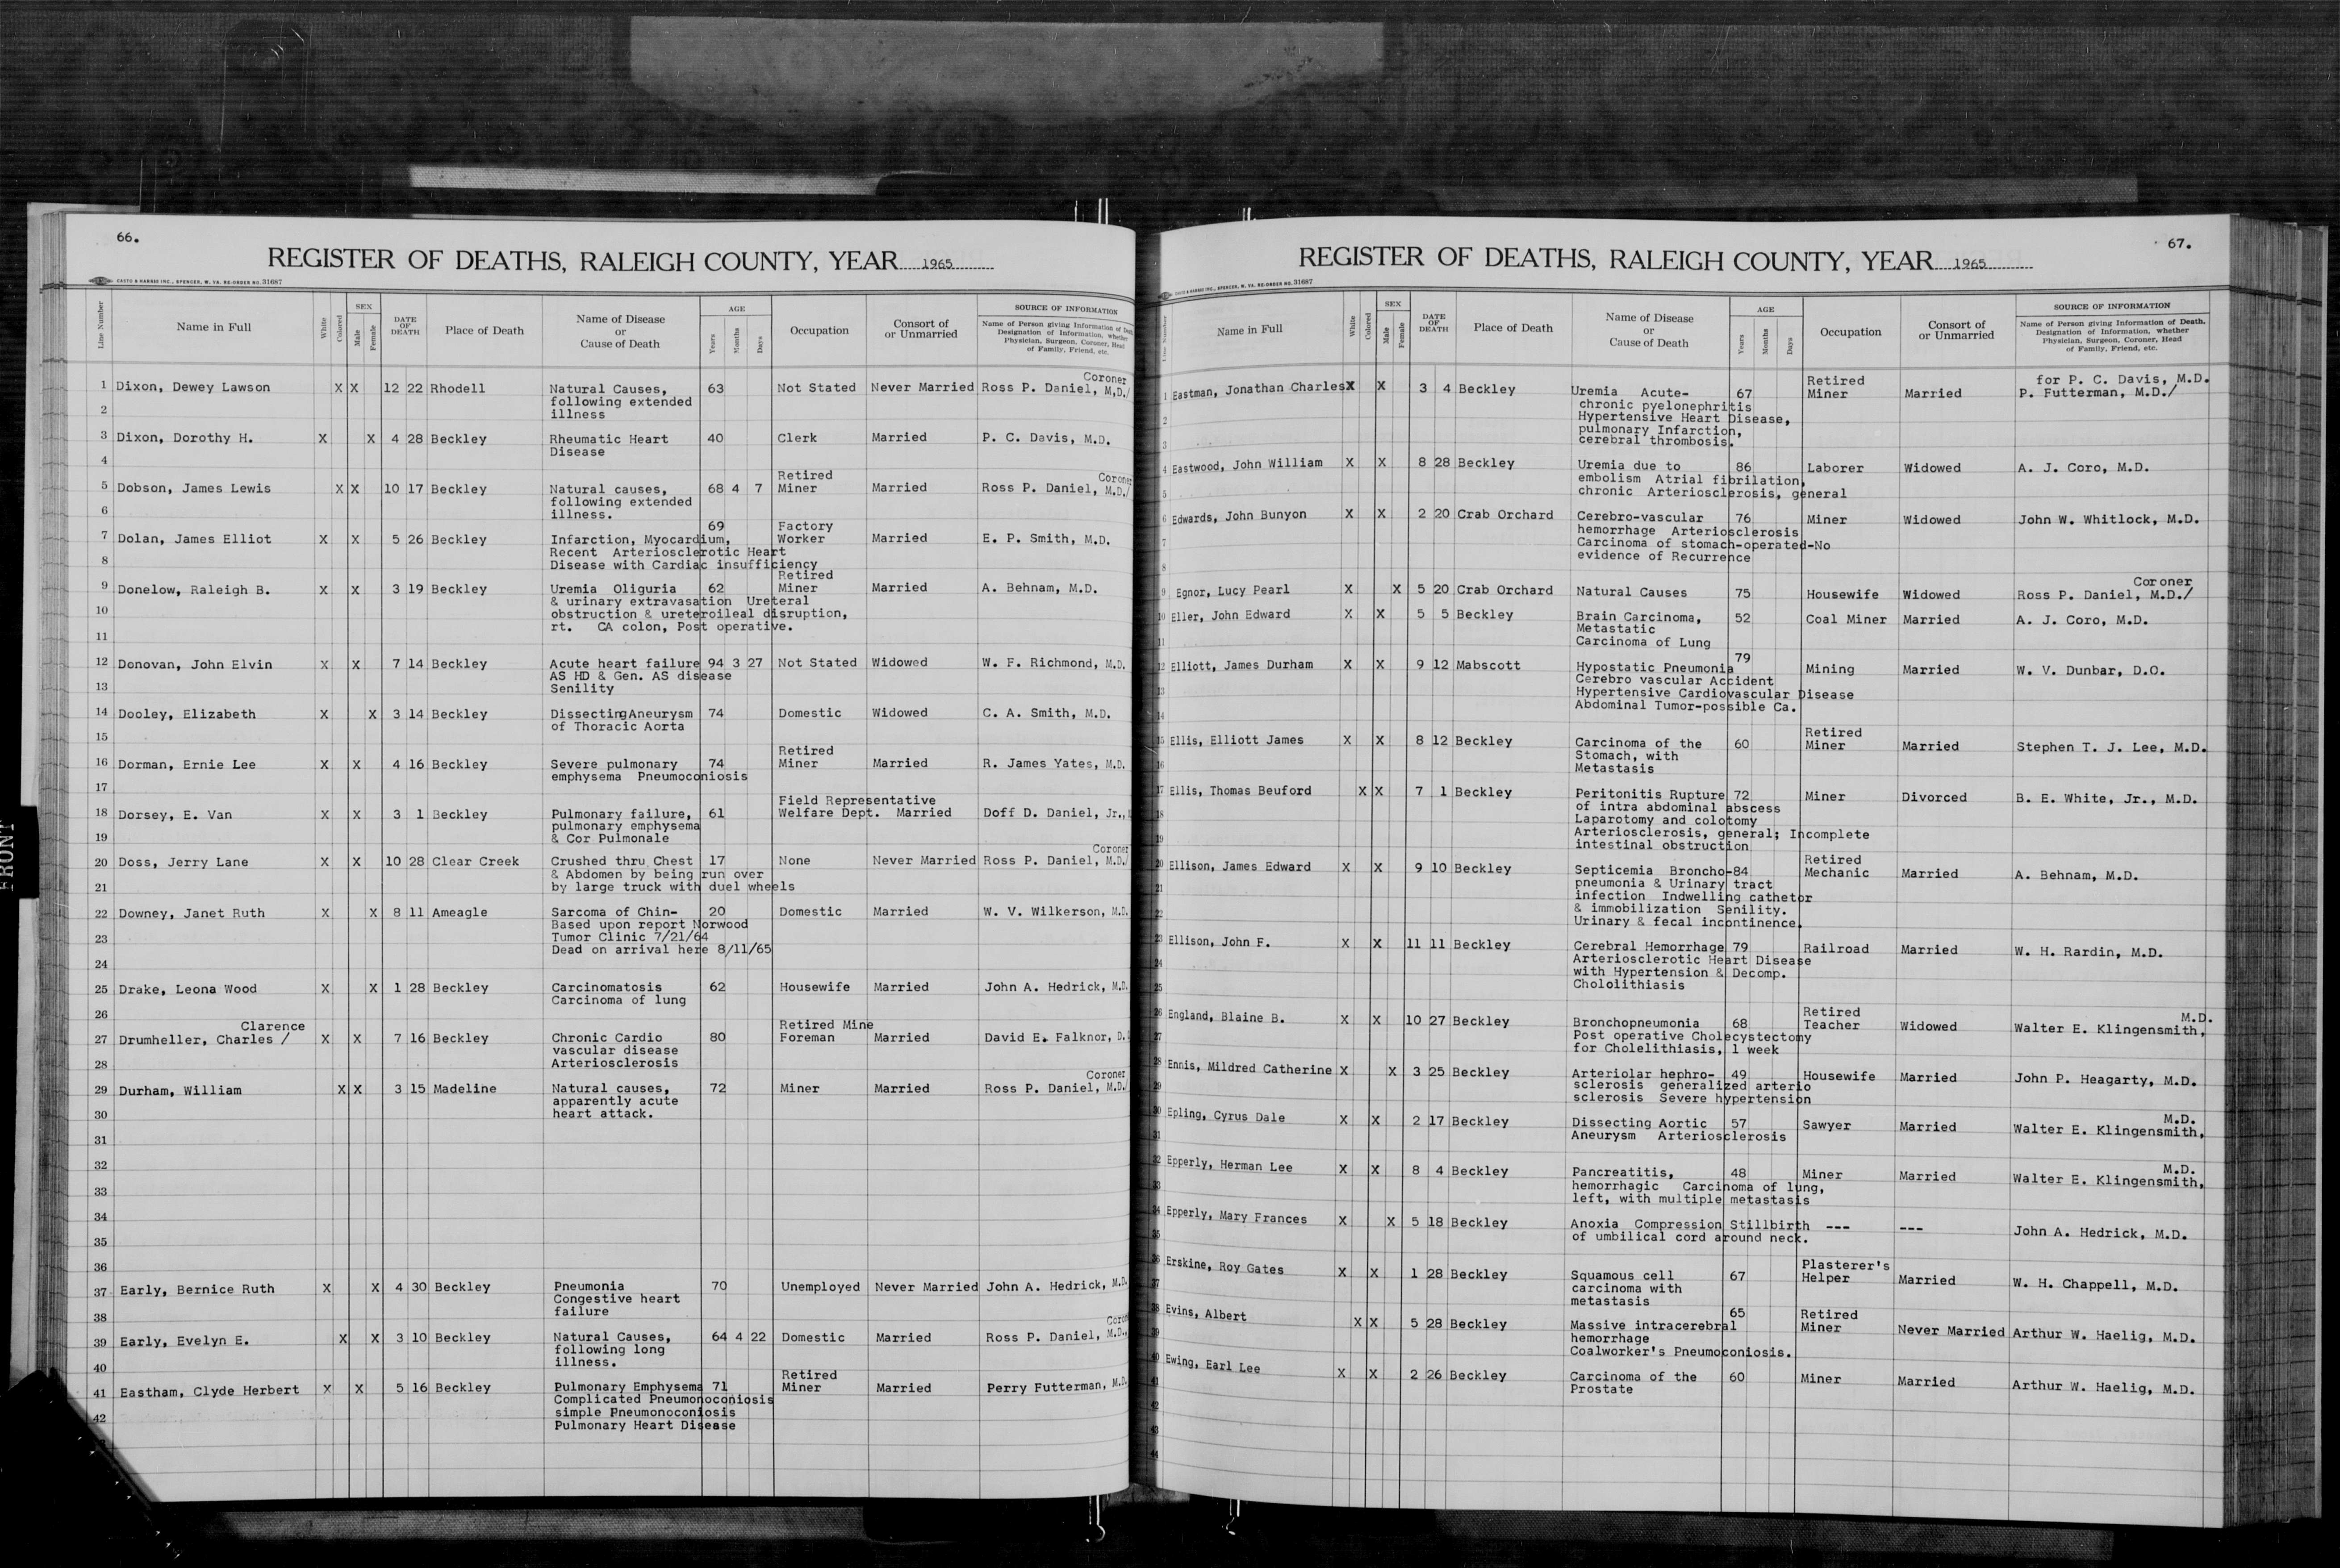 66.
REGISTER OF DEATHS, RALEIGH COUNTY, YEAR 1965
CASTO & HARRIS INC., SPENCER, W. VA. RE-ORDER NO. 31687
Line Number Name in Full White Colored SEX Male Female DATE OF DEATH Place of Death Name of Disease or Cause of Death AGE Years Months Days Occupation Consort of or Unmarried SOURCE OF INFORMATION
Name of Person giving Information of Death, Designation of Information, whether Physician, Surgeon, Coroner, Head of Family, Friend, etc.
Coroner
1 Dixon, Dewey Lawson X X 12 22 Rhodell Natural Causes, 63 Not Stated Never Married Ross P. Daniel, M.D./
following extended
2 illness
3 Dixon, Dorothy H. X X 4 28 Beckley Rheumatic Heart 40 Clerk Married P. C. Davis, M.D.
Disease
4
Retired Coroner
5 Dobson, James Lewis X X 10 17 Beckley Natural causes, 68 4 7 Miner Married Ross P. Daniel, M.D./
following extended
6 illness.
69 Factory
7 Dolan, James Elliot X X 5 26 Beckley Infarction, Myocardium, Worker Married E. P. Smith, M.D.
Recent Arteriosclerotic Heart
8 Disease with Cardiac insufficiency
Retired
9 Donelow, Raleigh B. X X 3 19 Beckley Uremia Oliguria 62 Miner Married A. Behnam, M.D.
& urinary extravasation Ureteral
10 obstruction & ureteroileal disruption,
rt. CA colon, Post operative.
11
12 Donovan, John Elvin X X 7 14 Beckley Acute heart failure 94 3 27 Not Stated Widowed W. F. Richmond, M.D.
AS HD & Gen. AS disease
13 Senility
14 Dooley, Elizabeth X X 3 14 Beckley Dissecting Aneurysm 74 Domestic Widowed C. A. Smith, M.D.
of Thoracic Aorta
15
Retired
16 Dorman, Ernie Lee X X 4 16 Beckley Severe pulmonary 74 Miner Married R. James Yates, M.D.
emphysema Pneumoconiosis
17
Field Representative
18 Dorsey, E. Van X X 3 1 Beckley Pulmonary failure, 61 Welfare Dept. Married Doff D. Daniel, Jr.,
pulmonary emphysema
19 & Cor Pulmonale
Coroner
20 Doss, Jerry Lane X X 10 28 Clear Creek Crushed thru Chest 17 None Never Married Ross P. Daniel, M.D./
& Abdomen by being run over
21 by large truck with duel wheels
22 Downey, Janet Ruth X X 8 11 Ameagle Sarcoma of Chin- 20 Domestic Married W. V. Wilkerson, M.D.
Based upon report Norwood
23 Tumor Clinic 7/21/64
Dead on arrival here 8/11/65
24
25 Drake, Leona Wood X X 1 28 Beckley Carcinomatosis 62 Housewife Married John A. Hedrick, M.D.
Carcinoma of lung
26
Clarence Retired Mine
27 Drumheller, Charles / X X 7 16 Beckley Chronic Cardio 80 Foreman Married David E. Falknor, D.
vascular disease
28 Arteriosclerosis
Coroner
29 Durham, William X X 3 15 Madeline Natural causes, 72 Miner Married Ross P. Daniel, M.D./
apparently acute
30 heart attack.
31
32
33
34
35
36
37 Early, Bernice Ruth X X 4 30 Beckley Pneumonia 70 Unemployed Never Married John A. Hedrick, M.D.
Congestive heart
38 failure
39 Early, Evelyn E. X X 3 10 Beckley Natural Causes, 64 4 22 Domestic Married Ross P. Daniel, M.D.,
following long
40 illness.
Retired
41 Eastham, Clyde Herbert X X 5 16 Beckley Pulmonary Emphysema 71 Miner Married Perry Futterman, M.D.
Complicated Pneumonoconiosis
42 simple Pneumonoconiosis
Pulmonary Heart Disease
FRONT
67.
REGISTER OF DEATHS, RALEIGH COUNTY, YEAR 1965
CASTO & HARRIS INC., SPENCER, W. VA. RE-ORDER NO. 31687
Line Number Name in Full White Colored SEX Male Female DATE OF DEATH Place of Death Name of Disease or Cause of Death AGE Years Months Days Occupation Consort of or Unmarried SOURCE OF INFORMATION
Name of Person giving Information of Death, Designation of Information, whether Physician, Surgeon, Coroner, Head of Family, Friend, etc.
Retired for P. C. Davis, M.D.
1 Eastman, Jonathan Charles X X 3 4 Beckley Uremia Acute- 67 Miner Married P. Futterman, M.D./
chronic pyelonephritis
2 Hypertensive Heart Disease,
pulmonary Infarction,
3 cerebral thrombosis.
4 Eastwood, John William X X 8 28 Beckley Uremia due to 86 Laborer Widowed A. J. Coro, M.D.
embolism Atrial fibrilation,
5 chronic Arteriosclerosis, general
6 Edwards, John Bunyon X X 2 20 Crab Orchard Cerebro-vascular 76 Miner Widowed John W. Whitlock, M.D.
hemorrhage Arteriosclerosis
7 Carcinoma of stomach-operated-No
evidence of Recurrence
8
Coroner
9 Egnor, Lucy Pearl X X 5 20 Crab Orchard Natural Causes 75 Housewife Widowed Ross P. Daniel, M.D./
10 Eller, John Edward X X 5 5 Beckley Brain Carcinoma, 52 Coal Miner Married A. J. Coro, M.D.
Metastatic
11 Carcinoma of Lung
12 Elliott, James Durham X X 9 12 Mabscott Hypostatic Pneumonia 79 Mining Married W. V. Dunbar, D.O.
Cerebro vascular Accident
13 Hypertensive Cardiovascular Disease
Abdominal Tumor-possible Ca.
14
Retired
15 Ellis, Elliott James X X 8 12 Beckley Carcinoma of the 60 Miner Married Stephen T. J. Lee, M.D.
Stomach, with
16 Metastasis
17 Ellis, Thomas Beuford X X 7 1 Beckley Peritonitis Rupture 72 Miner Divorced B. E. White, Jr., M.D.
of intra abdominal abscess
18 Laparotomy and colotomy
19 Arteriosclerosis, general; Incomplete
intestinal obstruction
Retired
20 Ellison, James Edward X X 9 10 Beckley Septicemia Broncho- 84 Mechanic Married A. Behnam, M.D.
21 pneumonia & Urinary tract
infection Indwelling cathetor
22 & immobilization Senility.
Urinary & fecal incontinence.
23 Ellison, John F. X X 11 11 Beckley Cerebral Hemorrhage 79 Railroad Married W. H. Rardin, M.D.
24 Arteriosclerotic Heart Disease
with Hypertension & Decomp.
25 Chololithiasis
Retired M.D.
26 England, Blaine B. X X 10 27 Beckley Bronchopneumonia 68 Teacher Widowed Walter E. Klingensmith,
27 Post operative Cholecystectomy
for Cholelithiasis, 1 week
28 Ennis, Mildred Catherine X X 3 25 Beckley Arteriolar hephro- 49 Housewife Married John P. Heagarty, M.D.
29 sclerosis generalized arterio
sclerosis Severe hypertension
M.D.
30 Epling, Cyrus Dale X X 2 17 Beckley Dissecting Aortic 57 Sawyer Married Walter E. Klingensmith,
31 Aneurysm Arteriosclerosis
M.D.
32 Epperly, Herman Lee X X 8 4 Beckley Pancreatitis, 48 Miner Married Walter E. Klingensmith,
33 hemorrhagic Carcinoma of lung,
left, with multiple metastasis
34 Epperly, Mary Frances X X 5 18 Beckley Anoxia Compression Stillbirth --- --- John A. Hedrick, M.D.
35 of umbilical cord around neck.
Plasterer's
36 Erskine, Roy Gates X X 1 28 Beckley Squamous cell 67 Helper Married W. H. Chappell, M.D.
37 carcinoma with
metastasis
65 Retired
38 Evins, Albert X X 5 28 Beckley Massive intracerebral Miner Never Married Arthur W. Haelig, M.D.
39 hemorrhage
Coalworker's Pneumoconiosis.
40 Ewing, Earl Lee X X 2 26 Beckley Carcinoma of the 60 Miner Married Arthur W. Haelig, M.D.
41 Prostate
42
43
44